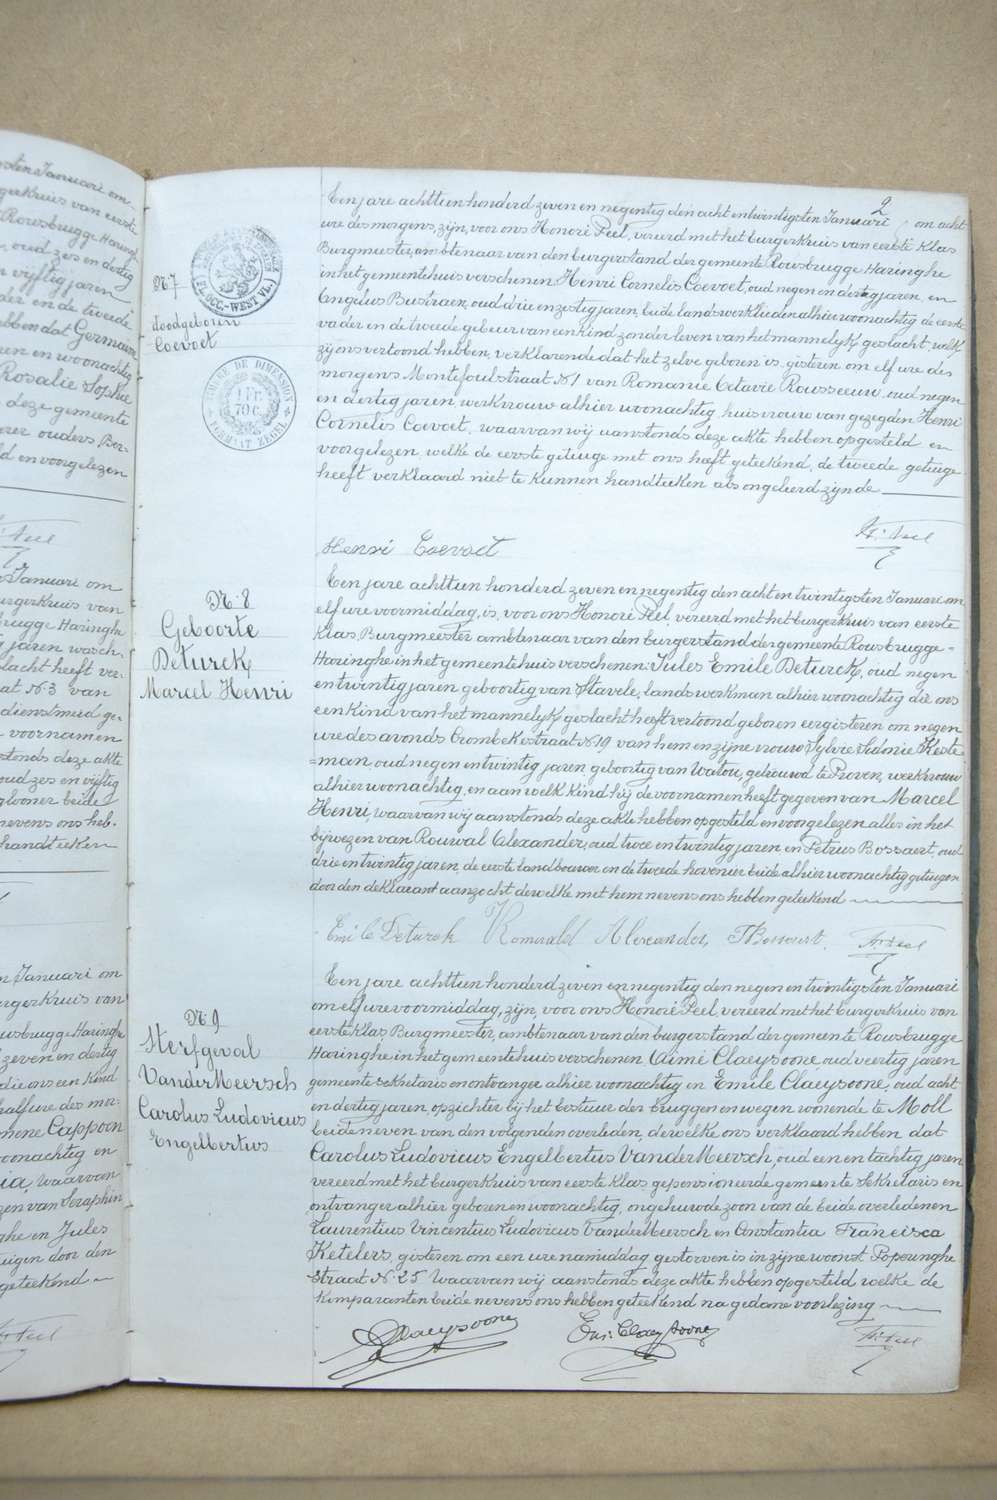 sten Januari om
gerkruis van eerste
Rousbrugge Haringh
oud zes en dertig
vijftig jaren
der en de tweede
ebben dat Germaine
ren en woonachtig
Rosalie Sophie
deze gemeente
ouders Ber-
d en voorgelezen
Januari om
urgerkruis van
brugge Haringhe
jaren wasch-
lacht heeft ver-
at N. 3 van
dienstmeid ge-
voornamen
stonds deze akte
oud zes en vijftig
glooner beide
nevens ons heb-
handteeken
n Januari om
urgerkruis van
usbrugge Haringhe
zeven en dertig
die ons een kind
half ure des mor-
mene Cappoen
oonachtig en
ia, waarvan
zen van Seraphin
ghe en Jules
uigen door den
geteekend
2
N. 7
doodgeboren
Coevoet
FL. OCC. - WEST VL.
TIMBRE DE DIMENSION
1 FR.
70 C.
FORMAT ZEGEL
Een jare achttien honderd zeven en negentig den acht en twintigsten Januari om acht
ure des morgens, zijn, voor ons Honoré Peel, vereerd met het burgerkruis van eerste klas
Burgmeester, ambtenaar van den burgerstand der gemeente Rousbrugge Haringhe
in het gemeentehuis verschenen Henri Cornelis Coevoet, oud negen en dertig jaren, en
Angelus Bustraen, oud drie en zestig jaren, beide landswerklieden alhier woonachtig de eerste
vader en de tweede gebuur van een kind zonder leven van het mannelijk geslacht, welk
zij ons vertoond hebben, verklarende dat het zelve geboren is gisteren om elf ure des
morgens Montefoulstraat N. 1 van Romanie Octavie Rousseeuw, oud negen
en dertig jaren werkvrouw alhier woonachtig, huisvrouw van gezegden Henri
Cornelis Coevoet, waarvan wij aanstonds deze akte hebben opgesteld en
voorgelezen, welke de eerste getuige met ons heeft geteekend, de tweede getuige
heeft verklaard niet te kunnen handteeken als ongeleerd zijnde
Henri Coevoet
H. Peel
N. 8
Geboorte
Deturck
Marcel Henri
Een jare achttien honderd zeven en negentig den acht en twintigsten Januari om
elf ure voormiddag, is, voor ons Honoré Peel, vereerd met het burgerkruis van eerste
klas, Burgmeester ambtenaar van den burgerstand der gemeente Rousbrugge-
Haringhe in het gemeentehuis verschenen Jules Emile Deturck, oud negen
en twintig jaren geboortig van Stavele, landswerkman alhier woonachtig die ons
een kind van het mannelijk geslacht heeft vertoond geboren eergisteren om negen
ure des avonds Crombekestraat N. 19 van hem en zijne vrouw Sylvie Sidonie Keste
=man, oud negen en twintig jaren, geboortig van Watou, getrouwd te Proven, werkvrouw
alhier woonachtig, en aan welk kind hij de voornamen heeft gegeven van Marcel
Henri, waarvan wij aanstonds deze akte hebben opgesteld en voorgelezen alles in het
bijwezen van Alexander, oud twee en twintig jaren en Petrus Bossaert, oud
drie en twintig jaren, de eerste landbouwer en de tweede hovenier beide alhier woonachtig getuigen
door den deklarant aanzocht dewelke met hem nevens ons hebben geteekend
Emile Deturck Alexander P Bossaert H. Peel
N. 9
Sterfgeval
VanderMeersch
Carolus Ludovicus
Engelbertus
Een jare achttien honderd zeven en negentig den negen en twintigsten Januari
om elf ure voormiddag, zijn, voor ons Honoré Peel, vereerd met het burgerkruis van
eerste klas, Burgmeester, ambtenaar van den burgerstand der gemeente Rousbrugge
Haringhe in het gemeentehuis verschenen Aimé Claeysoone, oud veertig jaren
gemeente sekretaris en ontvanger alhier woonachtig en Emile Claeysoone, oud acht
en dertig jaren, opzichter bij het bestuur der bruggen en wegen wonende te Moll
beide neven van den volgenden overleden, dewelke ons verklaard hebben dat
Carolus Ludovicus Engelbertus VanderMeersch, oud een en tachtig jaren
vereerd met het burgerkruis van eerste klas, gepensioneerde gemeente sekretaris en
ontvanger alhier geboren en woonachtig, ongehuwde zoon van de beide overledenen
Laurentius Vincentius Ludovicus VanderMeersch en Constantia Francisca
Ketelers, gisteren om een ure namiddag gestorven is in zijne woonst Poperinghe
straat N. 25 Waarvan wij aanstonds deze akte hebben opgesteld welke de
komparanten beide nevens ons hebben geteekend na gedane voorlezing
Claeysoone Em. Claeysoone H. Peel